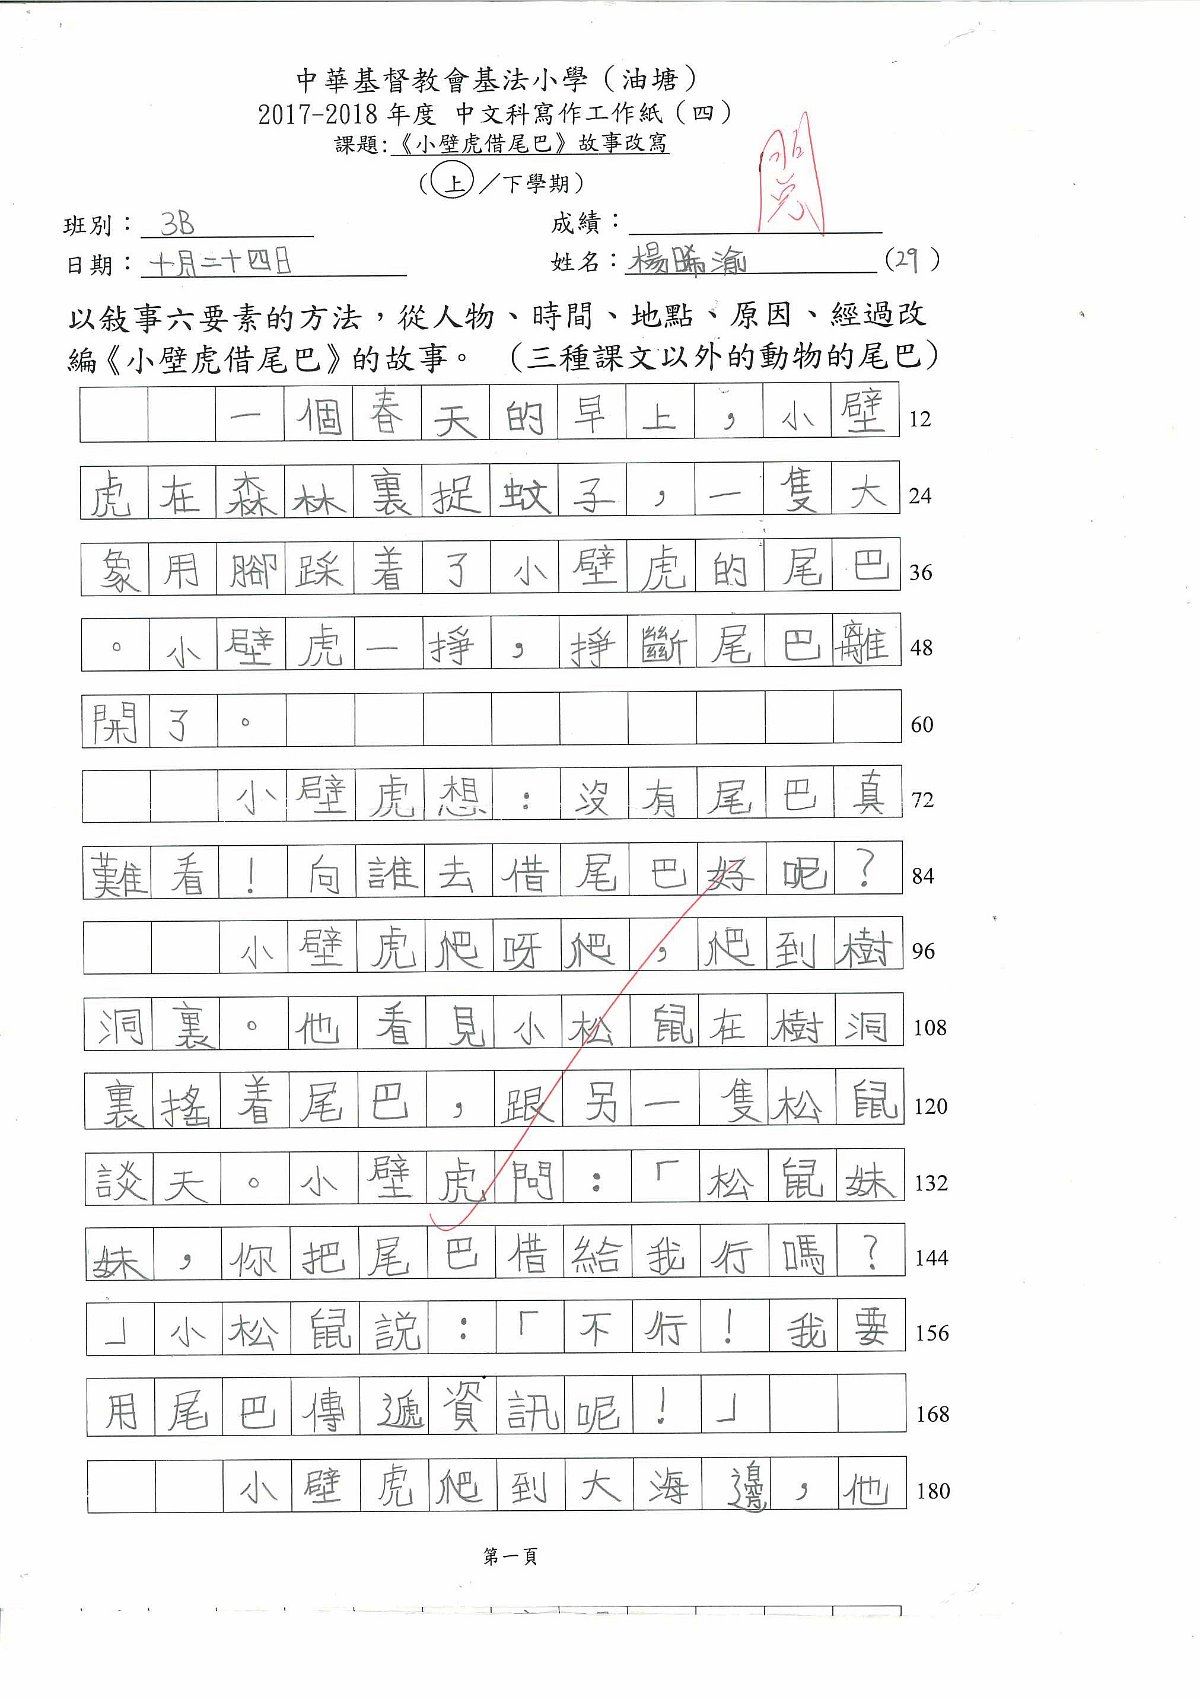 中華基督教會基法小學（油塘）
2017-2018 年度 中文科寫作工作紙（四）
課題:《小壁虎借尾巴》故事改寫
（上／下學期）
閱
班別：3B 成績：
日期：十月二十四日 姓名：楊晞渝（29）
以敍事六要素的方法，從人物、時間、地點、原因、經過改
編《小壁虎借尾巴》的故事。（三種課文以外的動物的尾巴）
一個春天的早上，小壁 12
虎在森林裏捉蚊子，一隻大 24
象用腳踩着了小壁虎的尾巴 36
。小壁虎一掙，掙斷尾巴離 48
開了。 60
小壁虎想：沒有尾巴真 72
難看！向誰去借尾巴好呢？ 84
小壁虎爬呀爬，爬到樹 96
洞裏。他看見小松鼠在樹洞 108
裏搖着尾巴，跟另一隻松鼠 120
談天。小壁虎問：「松鼠妹 132
妹，你把尾巴借給我行嗎？ 144
」小松鼠説：「不行！我要 156
用尾巴傳遞資訊呢！」 168
小壁虎爬到大海邊，他 180
第一頁